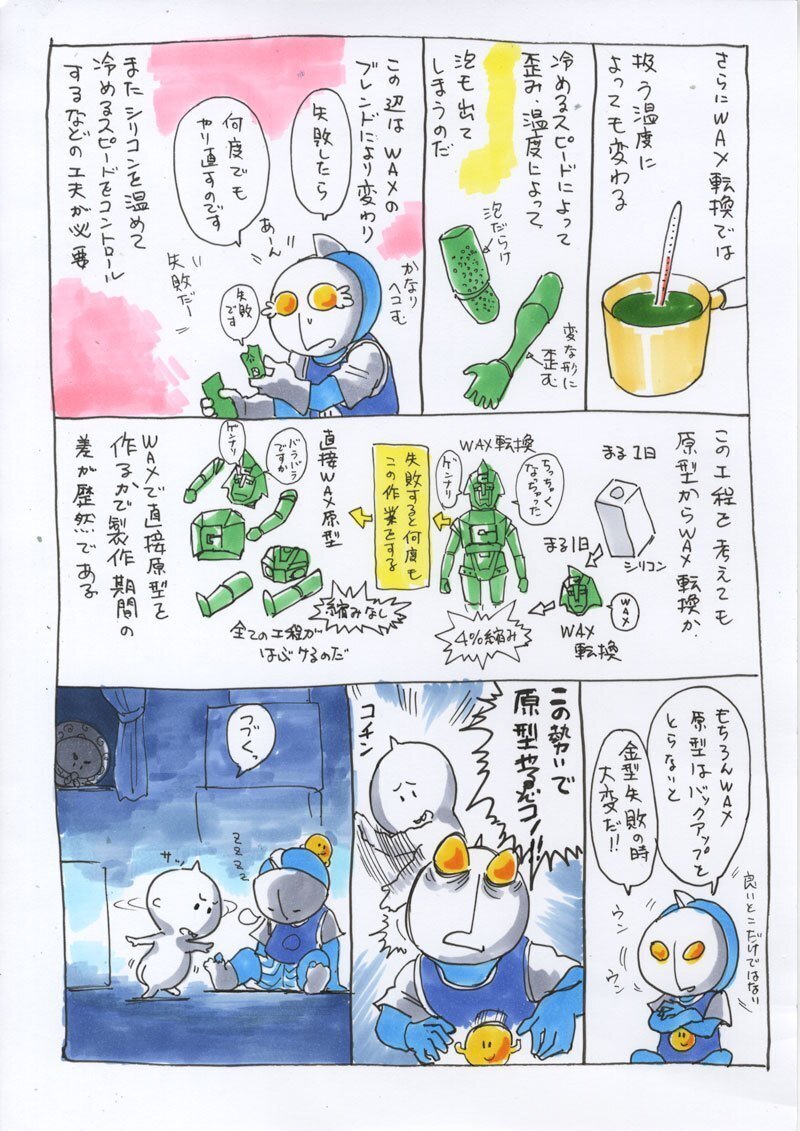 さらにWAX転換では
扱う温度に
よっても変わる
冷めるスピードによって
歪み、温度によって
泡も出て
しまうのだ
泡だらけ
変な形に
歪む
この辺はWAXの
ブレンドにより変わり
またシリコンを温めて
冷めるスピードをコントロール
するなどの工夫が必要
失敗したら
何度でも
やり直すのです
あーん
失敗だー
失敗
です
かなり
ヘコむ
この工程を考えても
原型からWAX転換か
まる1日
シリコン
まる1日
WAX
WAX
転換
WAX転換
ちっちゃく
なっちゃった
ゲンナリ
4%縮み
失敗すると何度も
この作業をする
直接WAX原型
バラバラ
ですが
ゲンナリ
縮みなし
全ての工程が
はぶけるのだ
WAXで直接原型を
作るかで製作期間の
差が歴然である
もちろんWAX
原型はバックアップを
とらないと
金型失敗の時
大変だ!!
良いとこだけではない
ウン
ウン
この勢いで
原型やるぞコノ!!
コチン
つづくっ
サッ
ZZZZ